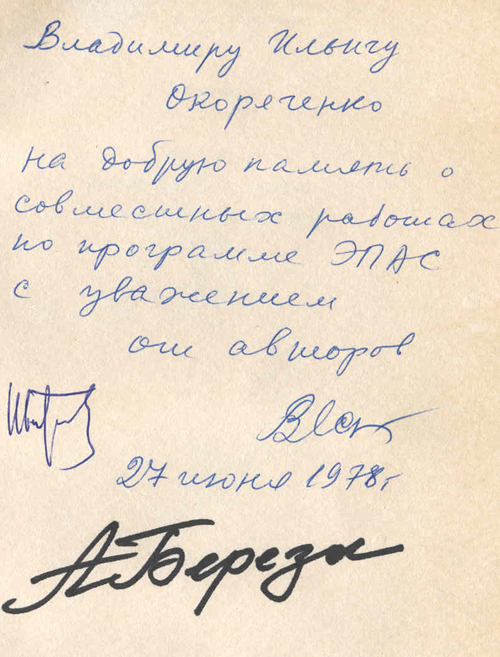 Владимиру Ильичу
Окореченко
на добрую память о
совместных работах
по программе ЭПАС
с уважением
от авторов
27 июня 1978г
А. Березин